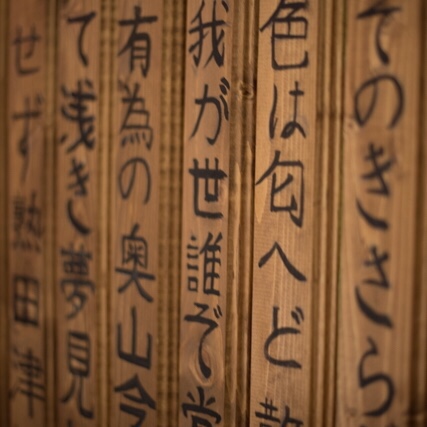 そのきさら
色は匂へど散
我が世誰ぞ常
有為の奥山今
て浅き夢見
せず熟田津